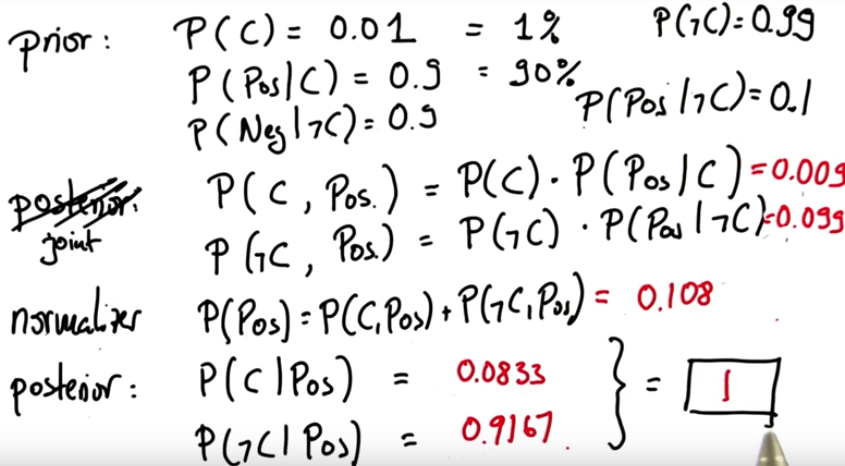 prior: P(C) = 0.01 = 1% P(¬C)=0.99
P(Pos|C) = 0.9 = 90%
P(Pos|¬C)=0.1
P(Neg|¬C)=0.9
posterior: P(C, Pos.) = P(C)·P(Pos|C)=0.009
joint P(¬C, Pos.) = P(¬C)·P(Pos|¬C)=0.099
normalizer P(Pos)=P(C,Pos)+P(¬C,Pos)= 0.108
posterior: P(C|Pos) = 0.0833 } = 1
P(¬C|Pos) = 0.9167